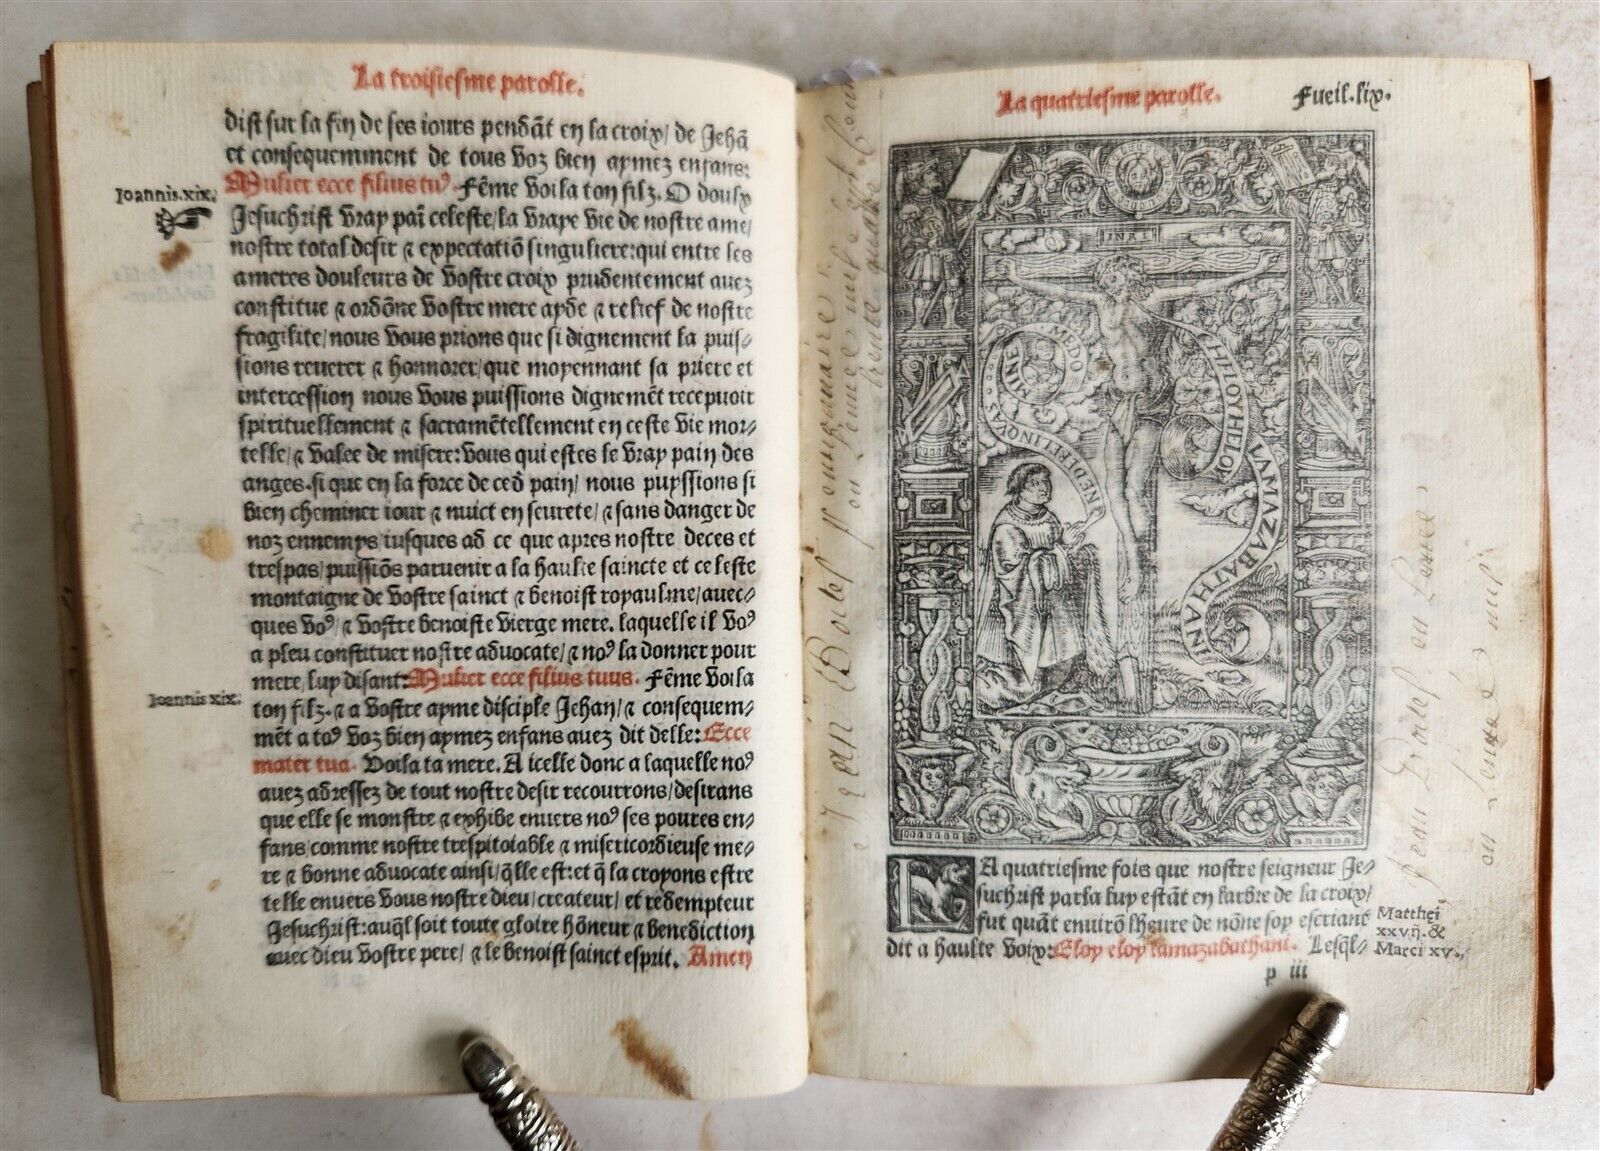 La troisiesme parolle.
dist sur la fin de ses iours pendãt en la croix/ de Jehã
et consequemment de tous voz bien aymez enfans:
Joannis.xix.
Mulier ecce filius tuꝰ. Fẽme voila ton filz. O doulx
Jesuchrist vray pain celeste/ la vraye vie de nostre ame/
nostre total desir & expectatiõ singuliere: qui entre les
ameres douleurs de vostre croix prudentement auez
constitue & ordõne vostre mere ayde & relief de nostre
fragilite/ nous vous prions que si dignement la puis/
sions reuerer & honnorer/ que moyennant sa priere et
intercession nous vous puissions dignemẽt recepuoir
spirituellement & sacramẽtellement en ceste vie mor/
telle/ & valee de misere: vous qui estes le vray pain des
anges. si que en la force de ced pain/ nous puyssions si
bien cheminer iour & nuict en seurete/ & sans danger de
noz ennemys iusques ad ce que apres nostre deces et
trespas/ puissiõs paruenir a la haulte saincte et celeste
montaigne de vostre sainct & benoist royaulme/ auec/
ques voꝰ/ & vostre benoiste vierge mere. laquelle il voꝰ
a pleu constituer nostre aduocate/ & noꝰ la donner pour
mere/ luy disant: Mulier ecce filius tuus. Fẽme voila
Joannis xix.
ton filz. & a vostre ayme disciple Jehan/ & consequem/
mẽt a toꝰ voz bien aymez enfans auez dit delle: Ecce
mater tua. Voila ta mere. A icelle donc a laquelle noꝰ
auez adressez de tout nostre desir recourrons/ desirans
que elle se monstre & exhibe enuers noꝰ ses poures en/
fans/ comme nostre trespitoiable & misericordieuse me/
re & bonne aduocate ainsi/ q̃lle est: et q̃ la croyons estre
telle enuers vous nostre dieu/ createur/ et redempteur
Jesuchrist: auq̃l soit toute gloire hõneur & benediction
auec dieu vostre pere/ & le benoist sainct esprit. Amen
La quatriesme parolle. Fueil.lix.
INRI
MEDO
MINE
NEDERELINQVAS
HELOY HELOY LAMAZABATHANI
LA quatriesme fois que nostre seigneur Je/
suchrist parla luy estãt en larbre de la croix/
fut quãt enuirõ lheure de nõne soy escriant
dit a haulte voix: Eloy eloy lamazabathani. Lesq̃l/
Matthei
xxvij. &
Marci xv.
p iii
Jean